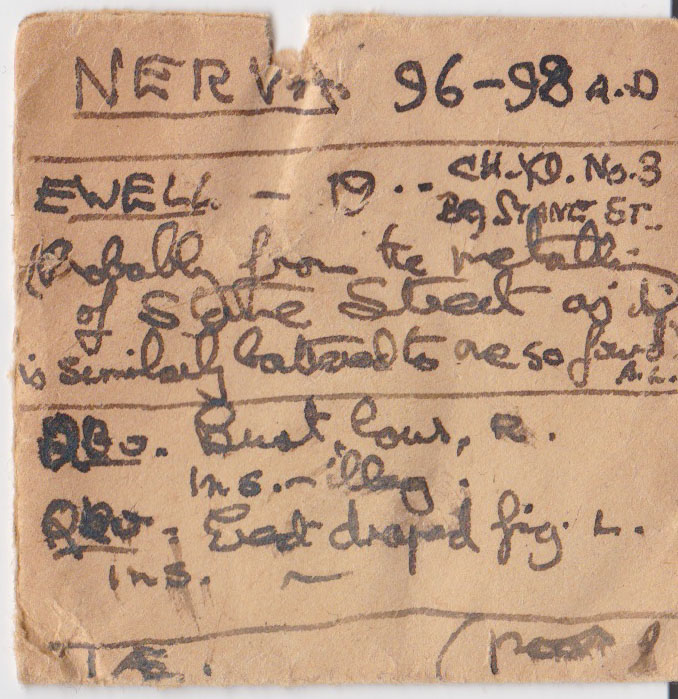 NERVA 96-98 A.D
EWELL - 19 .. CH.YD. No.3
STANE ST.
(Probably from the metalling
of Stane Street as it
is similarly battered to one so found)
A.L.
Obv. Bust, laur, R.
Ins. - illeg.
Rev. Erect draped fig. L.
Ins. ~
Æ. (poor